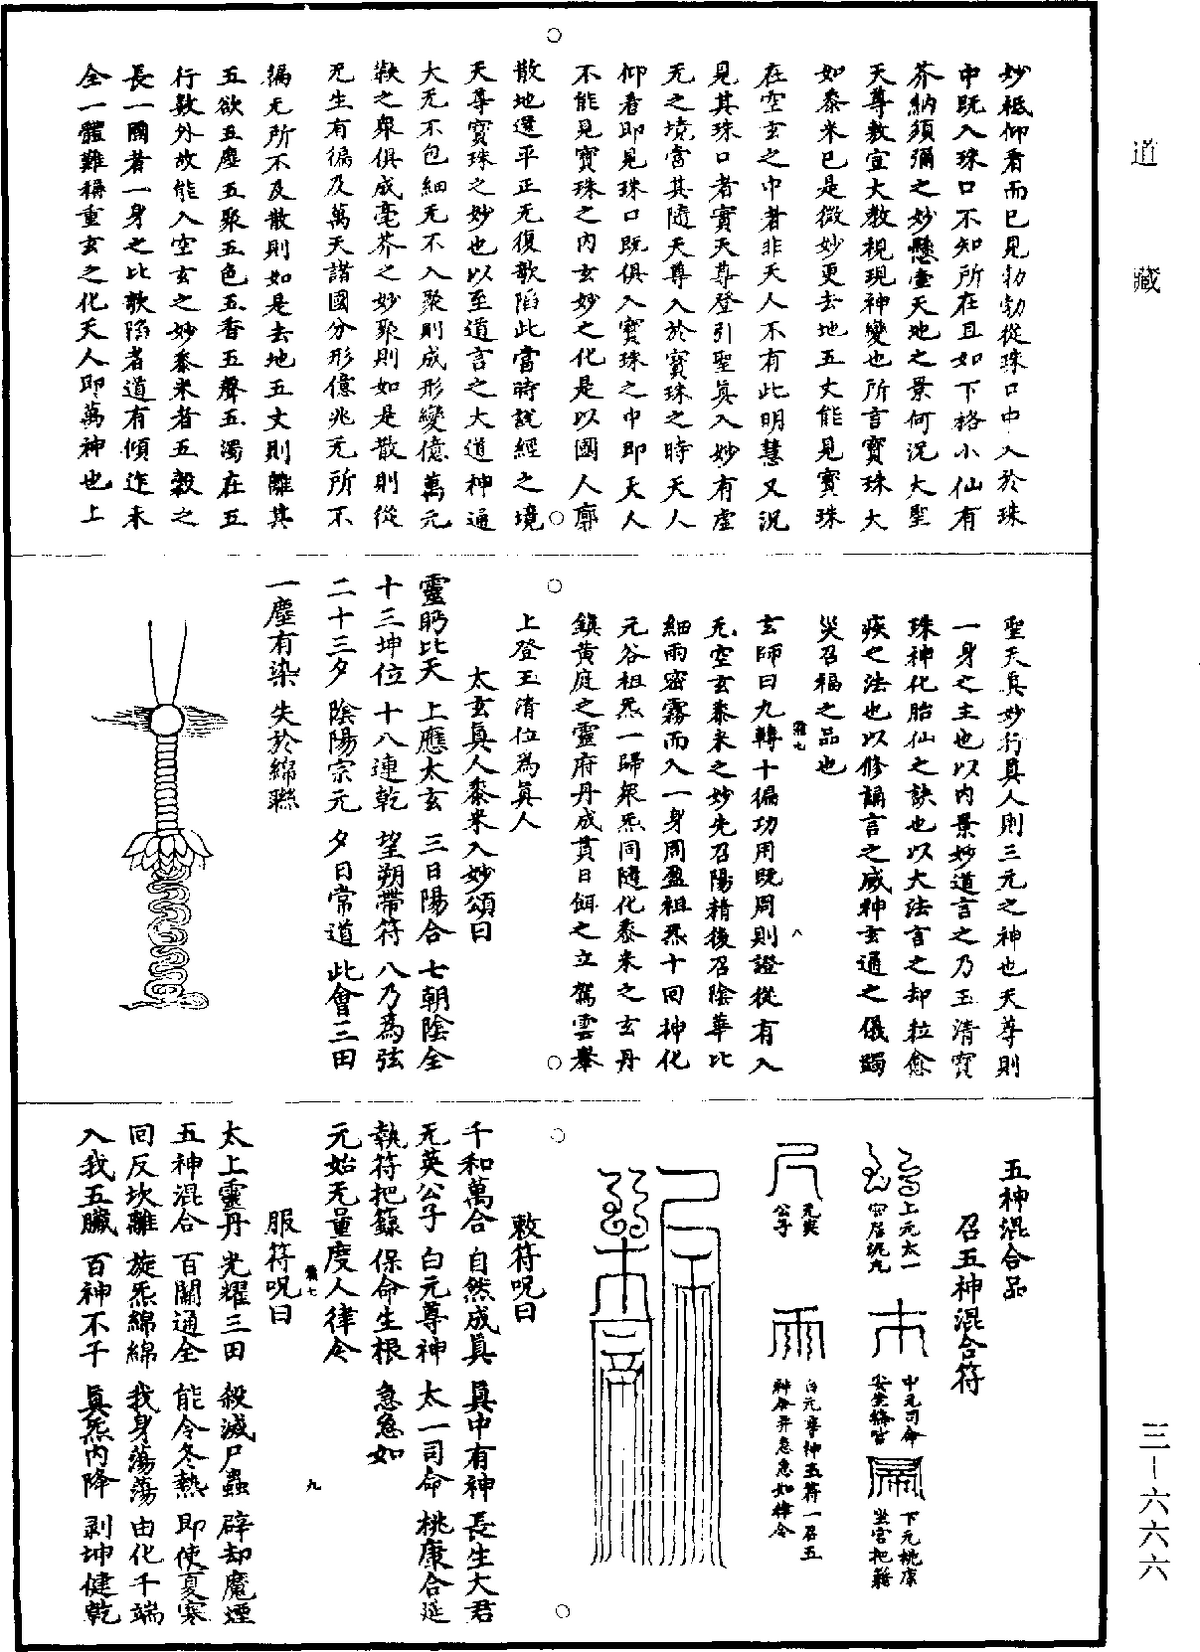 道藏
妙祗仰看而已見勃勃從珠口中入於珠
中既入珠口不知所在且如下格小仙有
芥納須彌之妙懸壺天地之景何況大聖
天尊敷宣大教視現神變也所言寶珠大
如黍米已是微妙更去地五丈能見寶珠
在空玄之中者非天人不有此明慧又況
見其珠口者實天尊登引聖眞入妙有虛
无之境當其隨天尊入於寶珠之時天人
仰看即見珠口既俱入寶珠之中即天人
不能見寶珠之內玄妙之化是以國人廓
散地還平正无復欹陷此當時說經之境
天尊寶珠之妙也以至道言之大道神通
大无不包細无不入聚則成形變億萬元
鞅之衆俱成毫芥之妙聚則如是散則從
无生有徧及萬天諸國分形億兆无所不
徧无所不及散則如是去地五丈則離其
五欲五塵五聚五色五香五聲五濁在五
行數外故能入空玄之妙黍米者五穀之
長一國者一身之比欹陷者道有傾迮未
全一體難稱重玄之化天人即萬神也上
聖天眞妙行眞人則三元之神也天尊則
一身之主也以內景妙道言之乃玉清寶
珠神化胎仙之訣也以大法言之却粒愈
疾之法也以修誦言之威神玄通之儀蠲
災召福之品也
玄師曰九轉十徧功用既周則證從有入
无空玄黍米之妙先召陽精後召陰華比
細雨密霧而入一身周盈祖炁十回神化
元谷祖炁一歸衆炁同隨化黍米之玄丹
鎮黃庭之靈府丹成貫日餌之立駕雲轝
上登玉清位爲眞人
太玄眞人黍米入妙頌曰
靈眄比天 上應太玄 三日陽合 七朝陰全
十三坤位 十八連乾 望朔帶符 八乃爲弦
二十三夕 陰陽宗元 夕日常道 此會三田
一塵有染 失於綿聯
五神混合品
召五神混合符
上元太一
宮居泥丸
中元司命
安坐絳宮
下元桃康
坐宮把籍
无英
公子
白元尊神五符一召五
神合并急急如律令
敕符呪曰
千和萬合 自然成眞 眞中有神 長生大君
无英公子 白元尊神 太一司命 桃康合延
執符把籙 保命生根 急急如
元始无量度人律令
服符呪曰
太上靈丹 光耀三田 殺滅尸蟲 辟却魔煙
五神混合 百關通全 能令冬熱 即使夏寒
回反坎離 旋炁綿綿 我身蕩蕩 由化千端
入我五臟 百神不干 眞炁內降 剥坤健乾
三-六六六